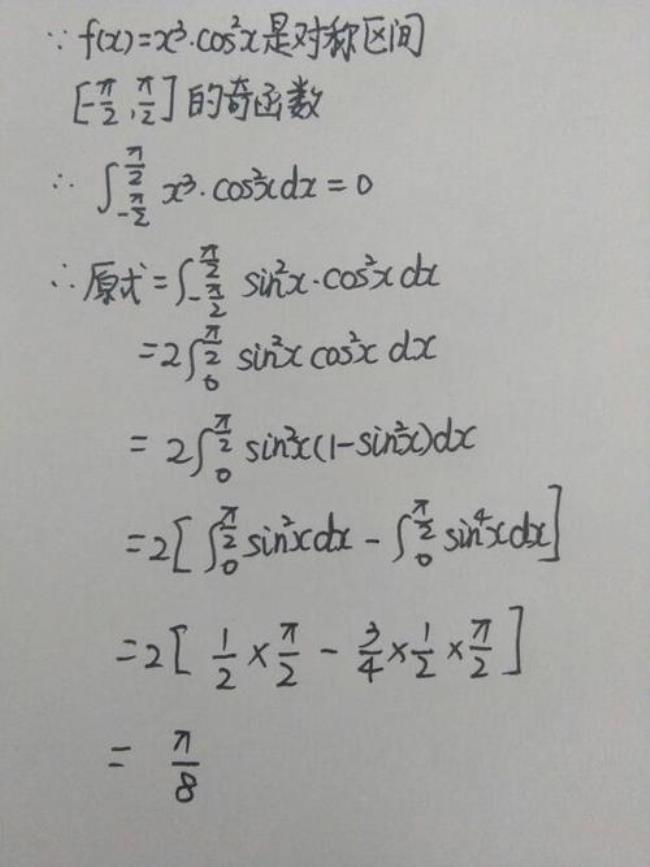 ∵ f(x)=x³·cos²x是对称区间
[-π/2,π/2]的奇函数
∴ ∫_{-π/2}^{π/2} x³·cos²xdx=0
∴原式=∫_{-π/2}^{π/2} sin²x·cos²xdx
=2∫_0^{π/2} sin²xcos²xdx
=2∫_0^{π/2} sin²x(1-sin²x)dx
=2[∫_0^{π/2} sin²xdx-∫_0^{π/2} sin⁴xdx]
=2[1/2×π/2-3/4×1/2×π/2]
=π/8